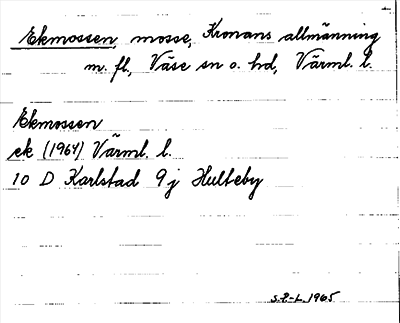 Ekmossen, mosse, Kronans allmänning
m. fl., Väse sn o. hd, Värml. l.
Ekmossen
ek (1964) Värml. l.
10 D Karlstad 9j Hulteby
S.E-L. 1965